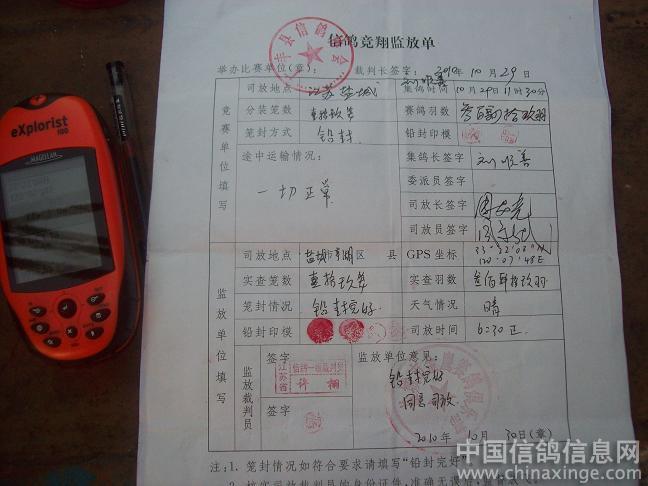 信鸽竞翔监放单
丰县信鸽 会
举办比赛单位(章): 裁判长签字: 刘顺善 2010年10月29日
竞赛单位填写
司放地点 江苏盐城 集鸽时间 10月29日11时30分
分装笼数 壹拾玖笼 赛鸽羽数 叁百 拾玖羽
笼封方式 铅封 铅封印模
途中运输情况: 集鸽长签字 刘顺善
一切正常 委派员签字
司放长签字
司放员签字
监放单位填写
司放地点 盐城市亭湖区 县 GPS坐标 120°07′48E
实查笼数 壹拾玖笼 实查羽数 叁佰肆拾玖羽
笼封情况 铅封完好 天气情况 晴
铅封印模 司放时间 6:30正
监放裁判员
签字 监放单位意见:
江苏省 信鸽一级裁判员 铅封完好
签字 同意司放
2010年10月30日(章)
注:1.笼封情况如符合要求请填写“铅封完好”
eXplorist
100
MAGELLAN
中国信鸽信息网
www.chinaxinge.com